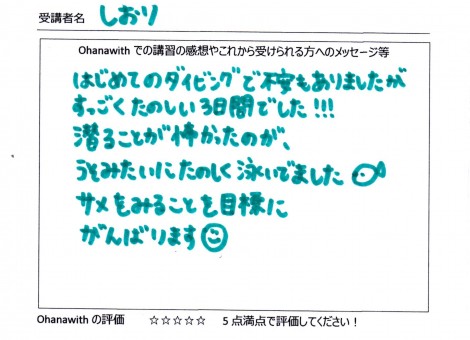 受講者名 しおり
Ohanawith での講習の感想やこれから受けられる方へのメッセージ等
はじめてのダイビングで不安もありましたが
すっごくたのしい3日間でした!!!
潜ることが怖かったのが、
うそみたいにたのしく泳いでました
サメをみることを目標に
がんばります
Ohanawith の評価 ☆☆☆☆☆ 5点満点で評価してください!